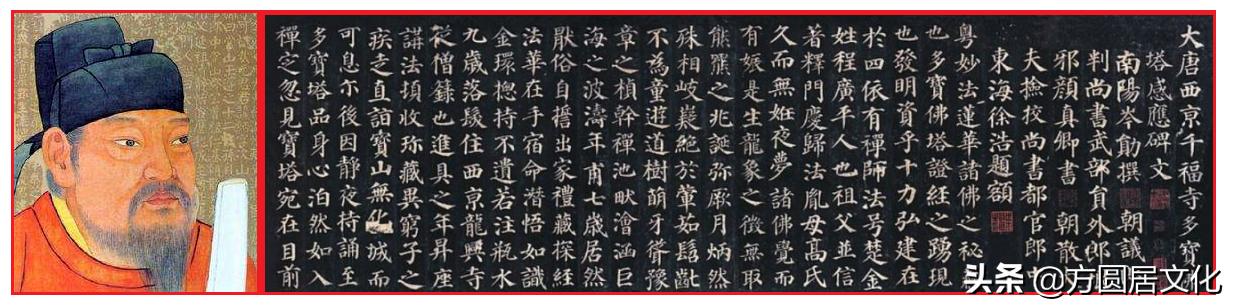 大唐西京千福寺多寶
塔感應碑文
南陽岑勛撰 朝議
判尚書武部員外郎
邪顏真卿書 朝散
夫撿挍尚書都官郎
東海徐浩題額
粵妙法蓮華諸佛之秘
也多寶佛塔證經之踴現
也發明資乎十力弘建在
於四依有禪師法号楚金
姓程廣平人也祖父並信
著釋門慶歸法胤母高氏
久而無姙夜夢諸佛覺而
有娠是生龍象之徵無取
熊羆之兆誕弥厥月炳然
殊相岐嶷絕於葷茹髫齔
不為童遊道樹萌牙聳豫
章之楨幹禪池畎澮涵巨
海之波濤年甫七歲居然
猒俗自誓出家禮藏探經
法華在手宿命潛悟如識
金環揔持不遺若注瓶水
九歲落髮住西京龍興寺
從僧籙也進具之年昇座
講法頓收珎藏異窮子之
疾走直詣寶山無化城而
可息尒後因靜夜持誦至
多寶塔品身心泊然如入
禪定忽見寶塔宛在目前
头条 @方圆居文化